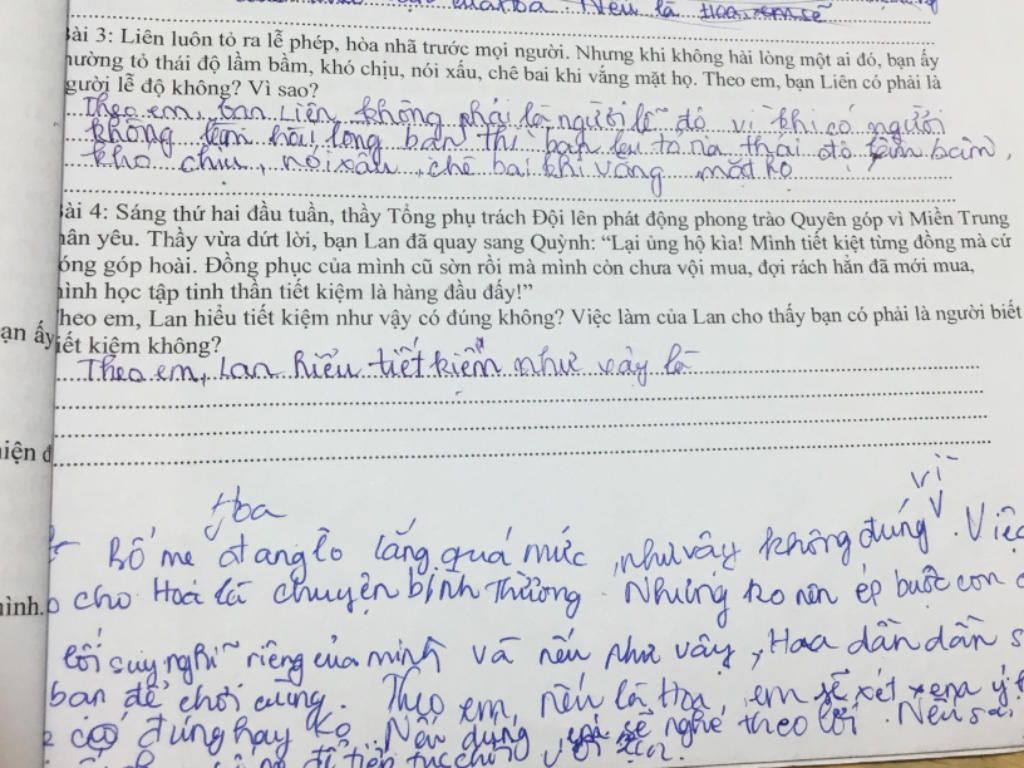 Nếu là Hoa, em sẽ
Bài 3: Liên luôn tỏ ra lễ phép, hòa nhã trước mọi người. Nhưng khi không hài lòng một ai đó, bạn ấy
thường tỏ thái độ lầm bầm, khó chịu, nói xấu, chê bai khi vắng mặt họ. Theo em, bạn Liên có phải là
người lễ độ không? Vì sao?
Theo em, bạn Liên không phải là người lễ độ vì khi có người
không làm hài lòng bạn thì bạn lại tỏ ra thái độ lầm bầm,
khó chịu, nói xấu, chê bai khi vắng mặt họ
Bài 4: Sáng thứ hai đầu tuần, thầy Tổng phụ trách Đội lên phát động phong trào Quyên góp vì Miền Trung
thân yêu. Thầy vừa dứt lời, bạn Lan đã quay sang Quỳnh: “Lại ủng hộ kìa! Mình tiết kiệt từng đồng mà cứ
đóng góp hoài. Đồng phục của mình cũ sờn rồi mà mình còn chưa vội mua, đợi rách hẳn đã mới mua,
mình học tập tinh thần tiết kiệm là hàng đầu đấy!”
Theo em, Lan hiểu tiết kiệm như vậy có đúng không? Việc làm của Lan cho thấy bạn có phải là người biết
bạn ấy
tiết kiệm không?
Theo em, Lan hiểu tiết kiệm như vậy là
hiện đ
Hoa
vì
Bố mẹ đang lo lắng quá mức, như vậy không đúng. Việc
hình.
cho Hoa là chuyện bình thường. Nhưng ko nên ép buộc con
lối suy nghĩ riêng của mình và nếu như vậy, Hoa dần dần s
bạn để chơi cùng. Theo em, nếu là Hoa, em sẽ xét xem ý
có đúng hay ko. Nếu đúng, sẽ nghe theo lời. Nếu sai
để tiếp tục chơi với